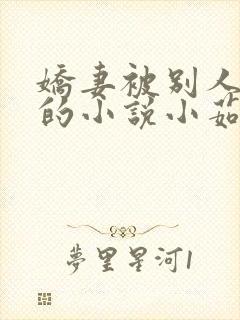 嬌妻被別人
的小說小茹
夢里星河1